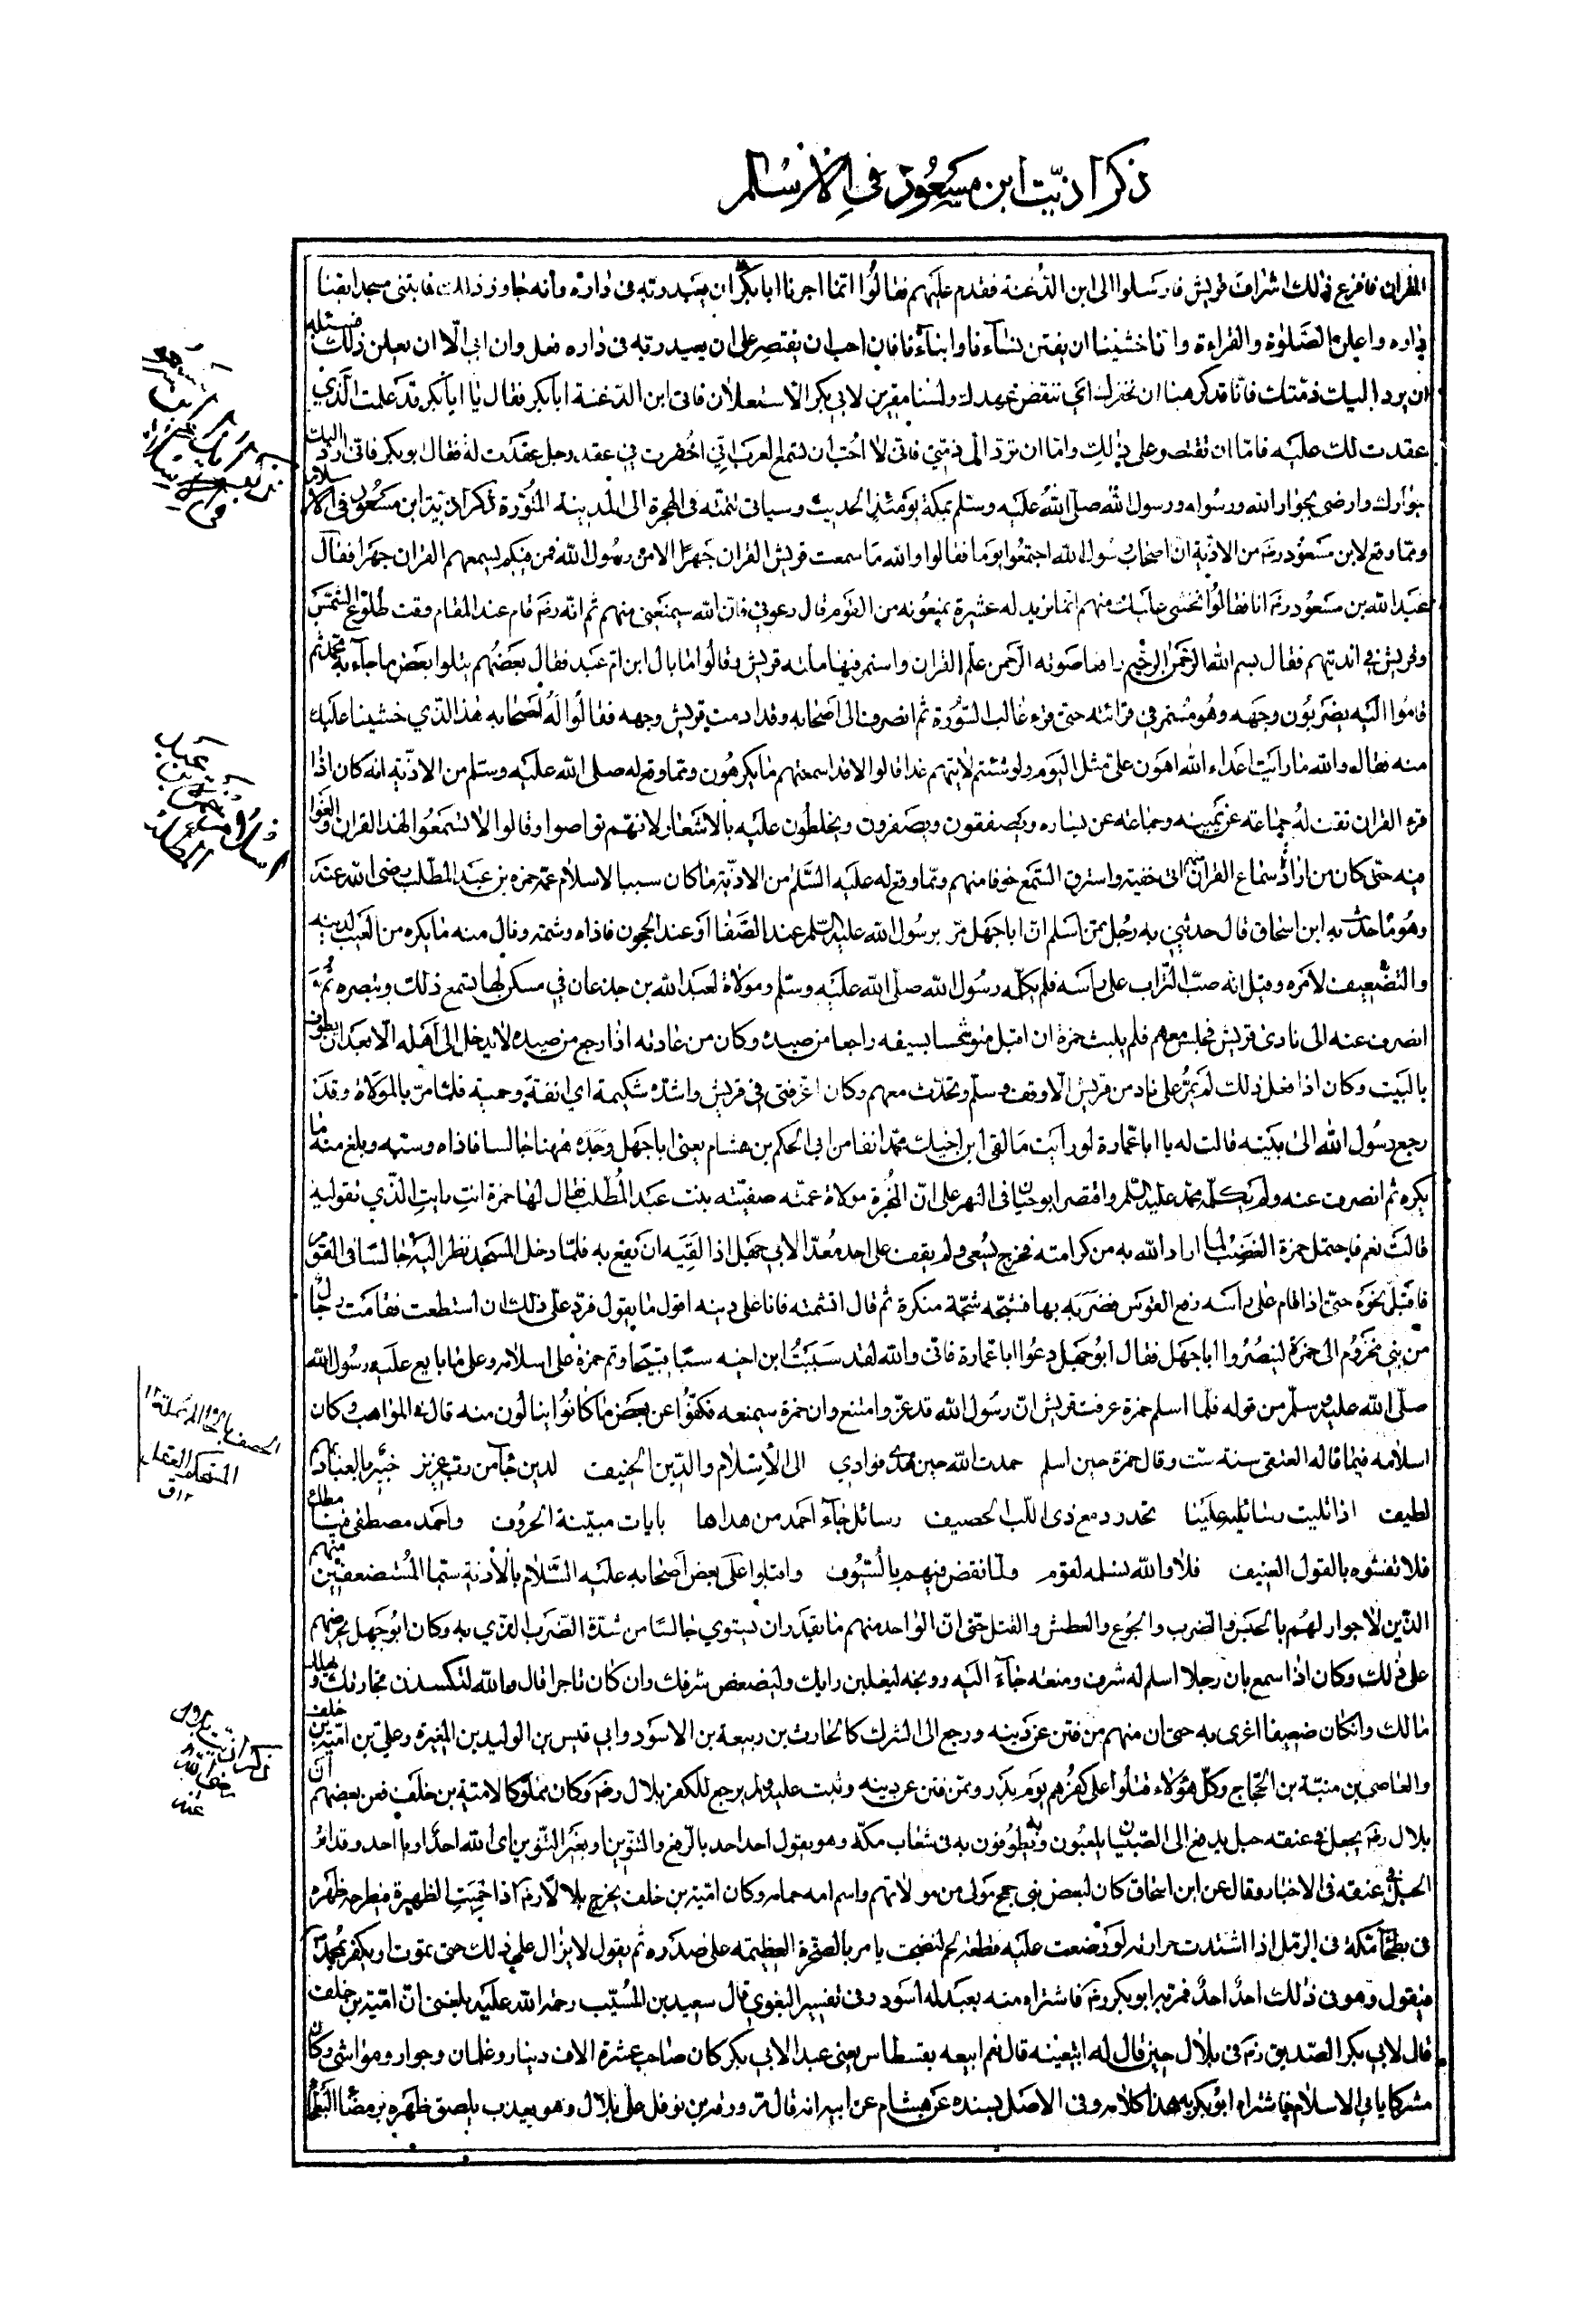 ذكر اذيت ابن مسعود في الاسلام
القران فافزع ذلك اشراف قريش فارسلوا الى ابن الدغنة فقدم عليهم فقالوا انما اجرنا ابا بكر ان يعبد ربه فى داره وانه جاوز ذلك فابتنى مسجدا بفنا
داره واعلن بالصلوة والقراءة وانا خشينا ان يفتن نساءنا وابناءنا فان احب ان يقتصر على ان يعبد ربه فى داره فعل وان ابى الا ان يعلن ذلك فسئله
ان يرد اليك ذمتك فانا قد كرهنا ان نخفرك اي ننقض عهدك ولسنا مقرين لابي بكر الاستعلان فاتى ابن الدغنة ابا بكر فقال يا ابا بكر قد علمت الذي
عقدت لك عليه فاما ان تقتصر على ذلك واما ان ترد الى ذمتي فانى لا احب ان تسمع العرب اني اخفرت في عقد رجل عقدت له فقال ابو بكر فانى ارد اليك
جوارك وارضى بجوار الله ورسوله ورسول الله صلى الله عليه وسلم بمكة يومئذ الحديث وسياتى تتمته فى الهجرة الى المدينة المنورة ذكر اذية ابن مسعود فى الاسلام
ومما وقع لابن مسعود رضه من الاذية ان اصحاب رسول الله اجتمعوا يوما فقالوا والله ما سمعت قريش القران جهرا الا من رسول الله فمن منكم يسمعهم القران جهرا فقال
عبد الله بن مسعود رضه انا فقالوا نخشى عليك منهم انما نريد له عشيرة يمنعونه من القوم قال دعوني فان الله سيمنعنى منهم ثم انه رضه قام عند المقام وقت طلوع الشمس
وقريش في انديتهم فقال بسم الله الرحمن الرحيم رافعا صوته الرحمن علم القران واستمر فيها فتامله قريش وقالوا ما بال ابن ام عبد فقال بعضهم يتلوا بعض ما جاء به محمد ثم
قاموا اليه يضربون وجهه وهو مستمر في قرائته حتى قرء غالب السورة ثم انصرف الى اصحابه وقد ادمت قريش وجهه فقالوا له اصحابه هذا الذي خشينا عليك
منه فقال والله ما رايت اعداء الله اهون علي مثل اليوم ولو شئتم لاتيتهم غدا قالوا لا قد اسمعتهم ما يكرهون ومما وقع له صلى الله عليه وسلم من الاذية انه كان اذا
قرء القران تقف له جماعة عن يمينه وجماعة عن يساره ويصفقون ويصفرون ويخلطون عليه بالاشعار لانهم تواصوا وقالوا لا تسمعوا لهذا القران والغوا
فيه حتى كان من اراد سماع القران اتى خفية واسترق السمع خوفا منهم ومما وقع له عليه السلم من الاذية ما كان سببا لاسلام عمه حمزه بن عبد المطلب رضى الله عنه
وهو ما حدث به ابن اسحاق قال حدثني به رجل ممن اسلم ان ابا جهل مر برسول الله عليه السلم عند الصفا او عند الحجون فاذاه وشتمه ونال منه ما يكره من العيب لدينه
والتضعيف لامره وقيل انه صب التراب على راسه فلم يكلمه رسول الله صلى الله عليه وسلم ومولاة لعبد الله بن جدعان في مسكن لها تسمع ذلك وتبصره ثم
انصرف عنه الى نادى قريش فجلس معهم فلم يلبث حمزة ان اقبل متوشحا بسيفه راجعا من صيده وكان من عادته اذا رجع من صيده لا يدخل الى اهله الا بعد ان يطوف
بالبيت وكان اذا فعل ذلك لم يمر على ناد من قريش الا وقف وسلم وتحدث معهم وكان اعز فتى في قريش واشده شكيمة اي انفة وحمية فلما مر بالمولاة وقد
رجع رسول الله الى بيته قالت له يا ابا عمارة لو رايت ما لقى ابن اخيك محمد انفا من ابى الحكم بن هشام يعنى ابا جهل وجده ههنا جالسا فاذاه وسبه وبلغ منه ما
يكره ثم انصرف عنه ولم يكلمه محمد عليه السلم واقتصر ابو حيان فى النهر على ان المخبرة مولاة عمته صفية بنت عبد المطلب فقال لها حمزة انت رايت الذي تقولين
قالت نعم فاحتمل حمزة الغضب لما اراد الله به من كرامته فخرج يسعى ولم يقف على احد معدا لابي جهل اذا لقيه ان يقع به فلما دخل المسجد نظر اليه جالسا فى القوم
فاقبل نحوه حتى اذا قام على راسه رفع القوس فضربه بها فشجه شجة منكرة ثم قال اتشتمه فانا على دينه اقول ما يقول فرد علي ذلك ان استطعت فقامت رجال
من بني مخزوم الى حمزة لينصروا ابا جهل فقال ابو جهل دعوا ابا عمارة فانى والله لقد سببت ابن اخيه سبا قبيحا وتم حمزة على اسلامه وعلى ما بايع عليه رسول الله
صلى الله عليه وسلم من قوله فلما اسلم حمزة عرفت قريش ان رسول الله قد عز وامتنع وان حمزة سيمنعه فكفوا عن بعض ما كانوا ينالون منه قال فى المواهب وكان
اسلامه فيما قاله العتقى سنة ست وقال حمزة حين اسلم حمدت الله حين هدى فوادي الى الاسلام والدين الحنيف لدين جاء من رب عزيز خبير بالعباد بهم
لطيف اذا تليت رسائله علينا تحدر دمع ذى اللب الحصيف رسائل جاء احمد من هداها بايات مبينة الحروف واحمد مصطفى فينا مطاع
فلا تغشوه بالقول العنيف فلا والله نسلمه لقوم ولما نقض فيهم بالسيوف وابتلوا على بعض اصحابه عليه السلام بالاذية سيما المستضعفين منهم
الذين لا جوار لهم بالحبس والضرب والجوع والعطش والقتل حتى ان الواحد منهم ما يقدر ان يستوي جالسا من شدة الضرب الذي به وكان ابو جهل يحرضهم
على ذلك وكان اذا سمع بان رجلا اسلم له شرف ومنعة جاء اليه ووبخه ليغلبن رايك وليضعضن شرفك وان كان تاجرا قال والله لتكسدن تجارتك ويهلك
مالك وان كان ضعيفا اغرى به حتى ان منهم من فتن عن دينه ورجع الى الشرك كالحارث بن ربيعة بن الاسود وابي قيس بن الوليد بن المغيرة وعلي بن امية بن خلف
والعاصى بن منبة بن الحجاج وكل هؤلاء قتلوا على كفرهم يوم بدر وممن فتن عن دينه وثبت عليه ولم يرجع للكفر بلال رضه وكان مملوكا لامية بن خلف فعن بعضهم ان
بلال رضه يجعل في عنقه حبل يدفع الى الصبيان يلعبون به ويطوفون به فى شعاب مكة وهو يقول احد احد بالرفع والتنوين او بغير التنوين اى الله احد او يا احد وقد اثر
الحبل في عنقه فى الاخبار وقال عن ابن اسحاق كان لبعض بني جمح مولى من مولاتهم واسم امه حمامه وكان امية بن خلف يخرج بلالا رضه اذا حميت الظهيرة فيطرحه ظهره
فى بطحاء مكة فى الرمل اذا اشتدت حرارته لو وضعت عليه قطعة لحم لنضجت يامر بالصخرة العظيمة على صدره ثم يقول لا يزال على ذلك حتى يموت او يكفر بمحمد
فيقول وهو فى ذلك احد احد فمر به ابو بكر رضه فاشتراه منه بعبد له اسود وفى تفسير البغوي قال سعيد بن المسيب رحمة الله عليه بلغنى ان امية بن خلف
قال لابي بكر الصديق رضه فى بلال حين قال له اتبيعنيه قال نعم ابيعه بقسطاس يعنى عبد الابي بكر كان صاحب عشرة الاف دينار وغلمان وجوار ومواشى وكان
مشركا يابى الاسلام فاشتراه ابو بكر به هذا كلامه وفى الاصل بسنده عن هشام عن ابيه انه قال مر ورقه بن نوفل على بلال وهو يعذب يلصق ظهره برمضاء البطحاء
الحصف بالحاء المهملة ١٢
المستحكم العقل
١٢ ق
ذكر اذيت بلال
رضى الله
عنه